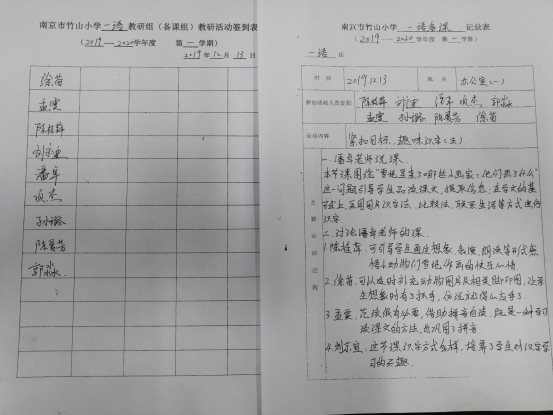 南京市竹山小学一语教研组（备课组）教研活动签到表
（2019——2020学年度 第一学期）
2019年12月13日
徐苗
孟雯
陈桂萍
刘京宜
潘卓
项杰
孙璐
陈爱芳
郭淼
南京市竹山小学 一语备课 记录表
（2019——2020学年度 第一学期）
一语 组
时间 2019.12.13 地点 办公室（一）
参加活动人员签到 陈桂萍 刘京宜 潘卓 项杰 郭淼
孟雯 孙璐 陈爱芳 徐苗
活动内容 紧扣目标，趣味识字（五）
主要活动过程
一、潘卓老师说课。
本节课围绕“雪地里来了哪些小画家？他们画了什么”
这一问题引导学生品读课文，提取信息；在学文的基
础上，采用图片识字法、比较法、联系生活等方式进行
识字。
二、讨论潘卓老师的课。
1.陈桂萍：可引导学生通过想象、表演、朗读等形式感
悟小动物们雪地作画的快乐心情
2.徐苗：可以适时补充动物图片及相关脚印图，让学
生想象时有了扶手，
3.孟雯：范读很有必要，借助拼音自读，既是一种学习
读课文的方法，也巩固了拼音
4.刘京宜：这节课识字方式多样，培养了学生对汉字学
习的兴趣。